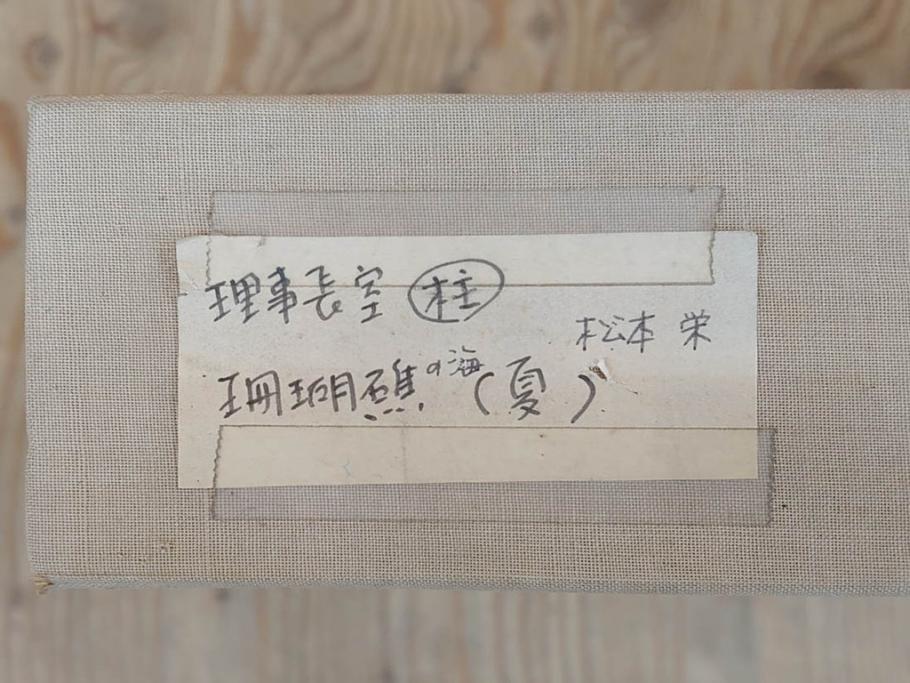 理事長室 柱
松本 栄
珊瑚礁の海(夏)